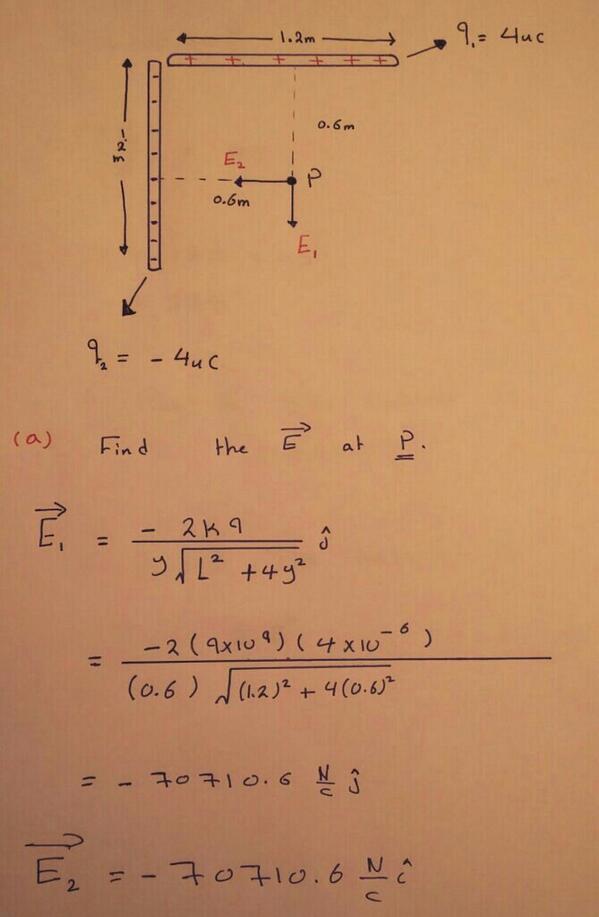 1.2m
q₁ = 4uc
+ + + + + +
0.6m
1.2 m
E₂
P
0.6m
E₁
q₂ = - 4uC
(a) Find the E⃗ at P.
E⃗₁ = - 2kq / y√(L² + 4y²) ĵ
= -2(9x10⁹)(4x10⁻⁶) / (0.6) √((1.2)² + 4(0.6)²)
= - 70710.6 N/C ĵ
E⃗₂ = - 70710.6 N/C î